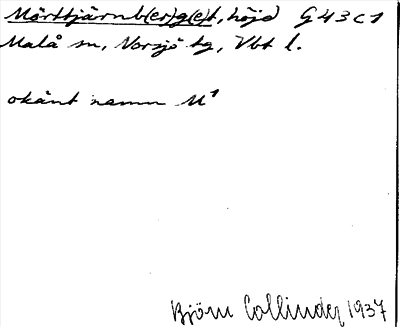 Mörttjärnb(er)g(e)t, höjd G43C1
Malå sn, Norsjö tg, Vbt l.
okänt namn M¹
Björn Collinder 1937